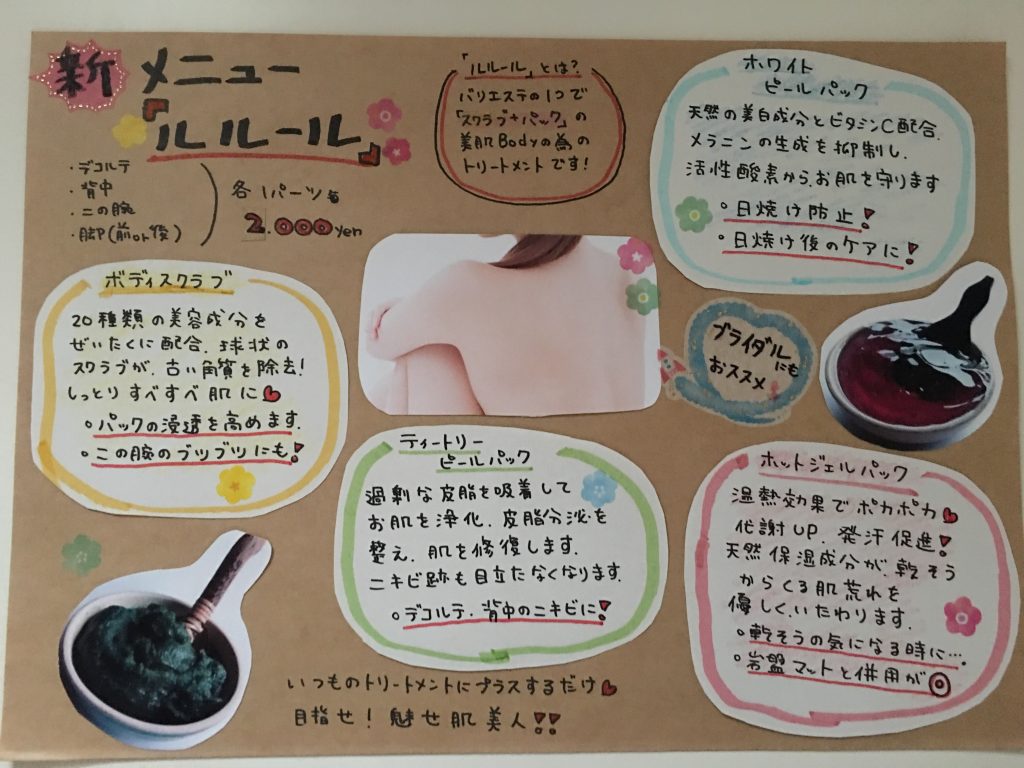 新メニュー
『ルルール』
・デコルテ
・背中
・二の腕
・脚(前or後)
各1パーツ毎
2.000yen
「ルルール」とは?
バリエステの1つで
「スクラブ+パック」の
美肌Bodyの為の
トリートメントです!
ホワイト
ピールパック
天然の美白成分とビタミンC配合.
メラニンの生成を抑制し.
活性酸素から.お肌を守ります
。日焼け防止!
。日焼け後のケアに!
ボディスクラブ
20種類の美容成分を
ぜいたくに配合.球状の
スクラブが、古い角質を除去!
しっとりすべすべ肌に♥
。パックの浸透を高めます.
。この腕のブツブツにも!
ブライダルにも
おススメ
ティートリー
ピールパック
過剰な皮脂を吸着して
お肌を浄化.皮脂分泌を
整え.肌を修復します.
ニキビ跡も目立たなくなります.
。デコルテ.背中のニキビに!
ホットジェルパック
温熱効果でポカポカ♥
代謝UP.発汗促進!
天然保湿成分が.乾そう
からくる肌荒れを
優しく、いたわります.
。乾そうの気になる時に…
。岩盤マットと併用が◎
いつものトリートメントにプラスするだけ♥
目指せ!魅せ肌美人!!